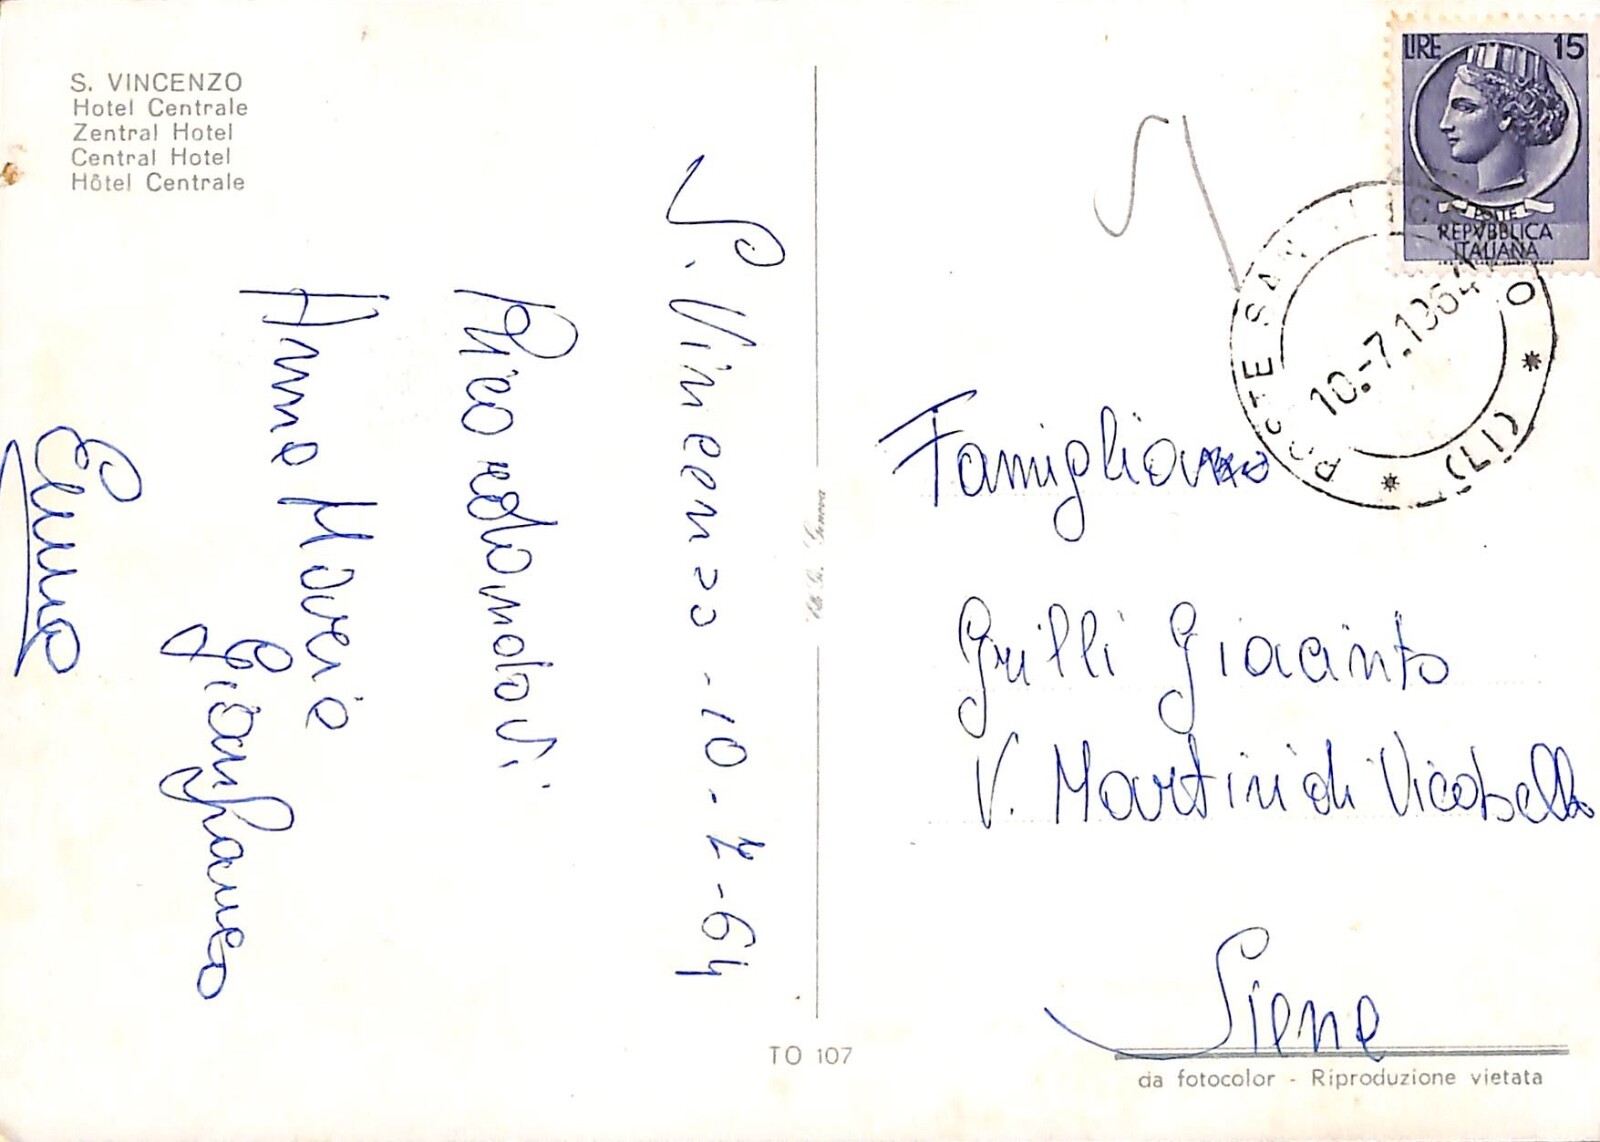 S. VINCENZO
Hotel Centrale
Zentral Hotel
Central Hotel
Hôtel Centrale
S. Vincenzo - 10 - 7 - 64
Ricordandovi
Anna Maria
Gianfranco
LIRE 15
POSTE
REPVBBLICA
ITALIANA
POSTE SAN
10.-7.1964
(LI)
Famiglia
Grilli Giacinto
V. Martini di Vicobello
Siena
Genova
TO 107
da fotocolor - Riproduzione vietata